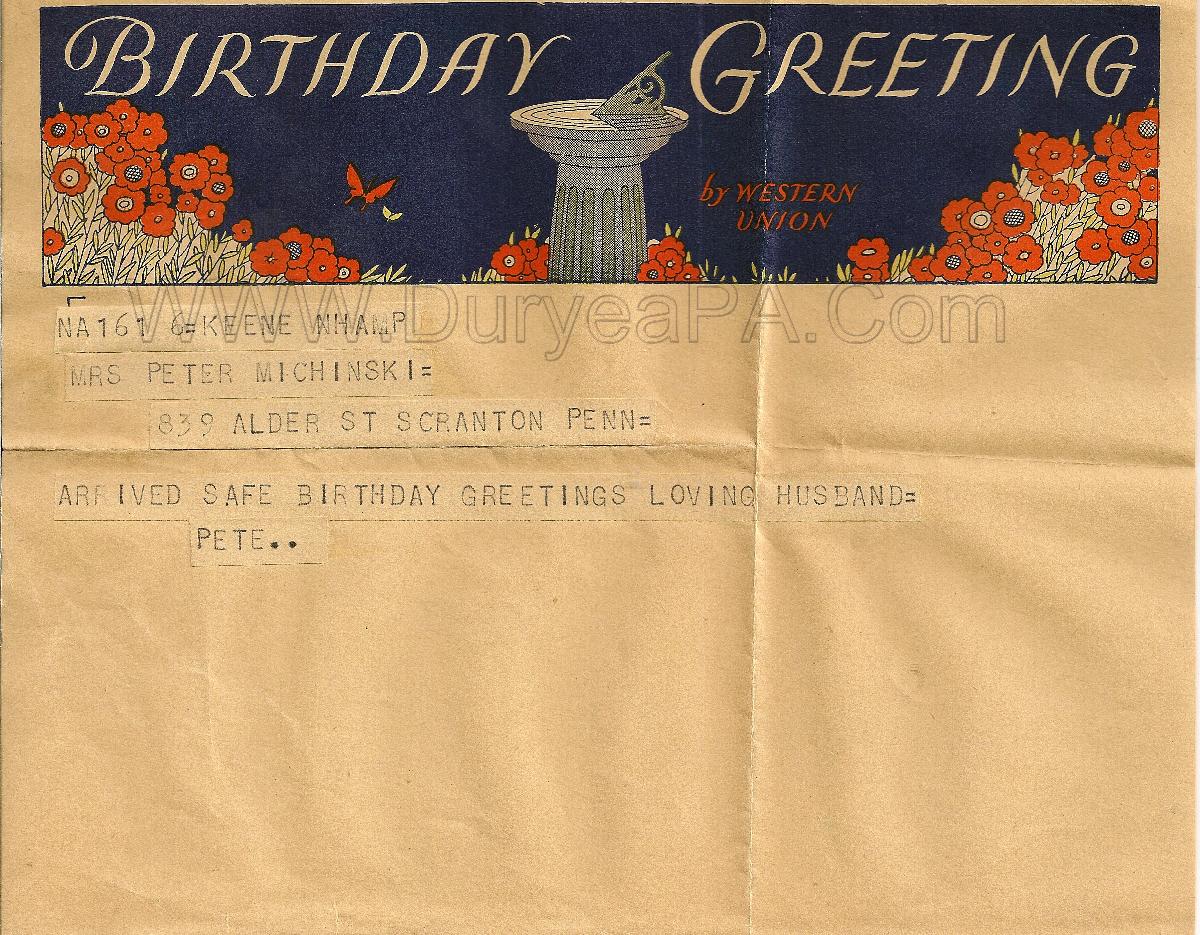 BIRTHDAY GREETING
by WESTERN
UNION
WWW.DuryeaPA.Com
NA161 6=KEENE NHAMP
MRS PETER MICHINSKI=
839 ALDER ST SCRANTON PENN=
ARRIVED SAFE BIRTHDAY GREETINGS LOVING HUSBAND=
PETE..